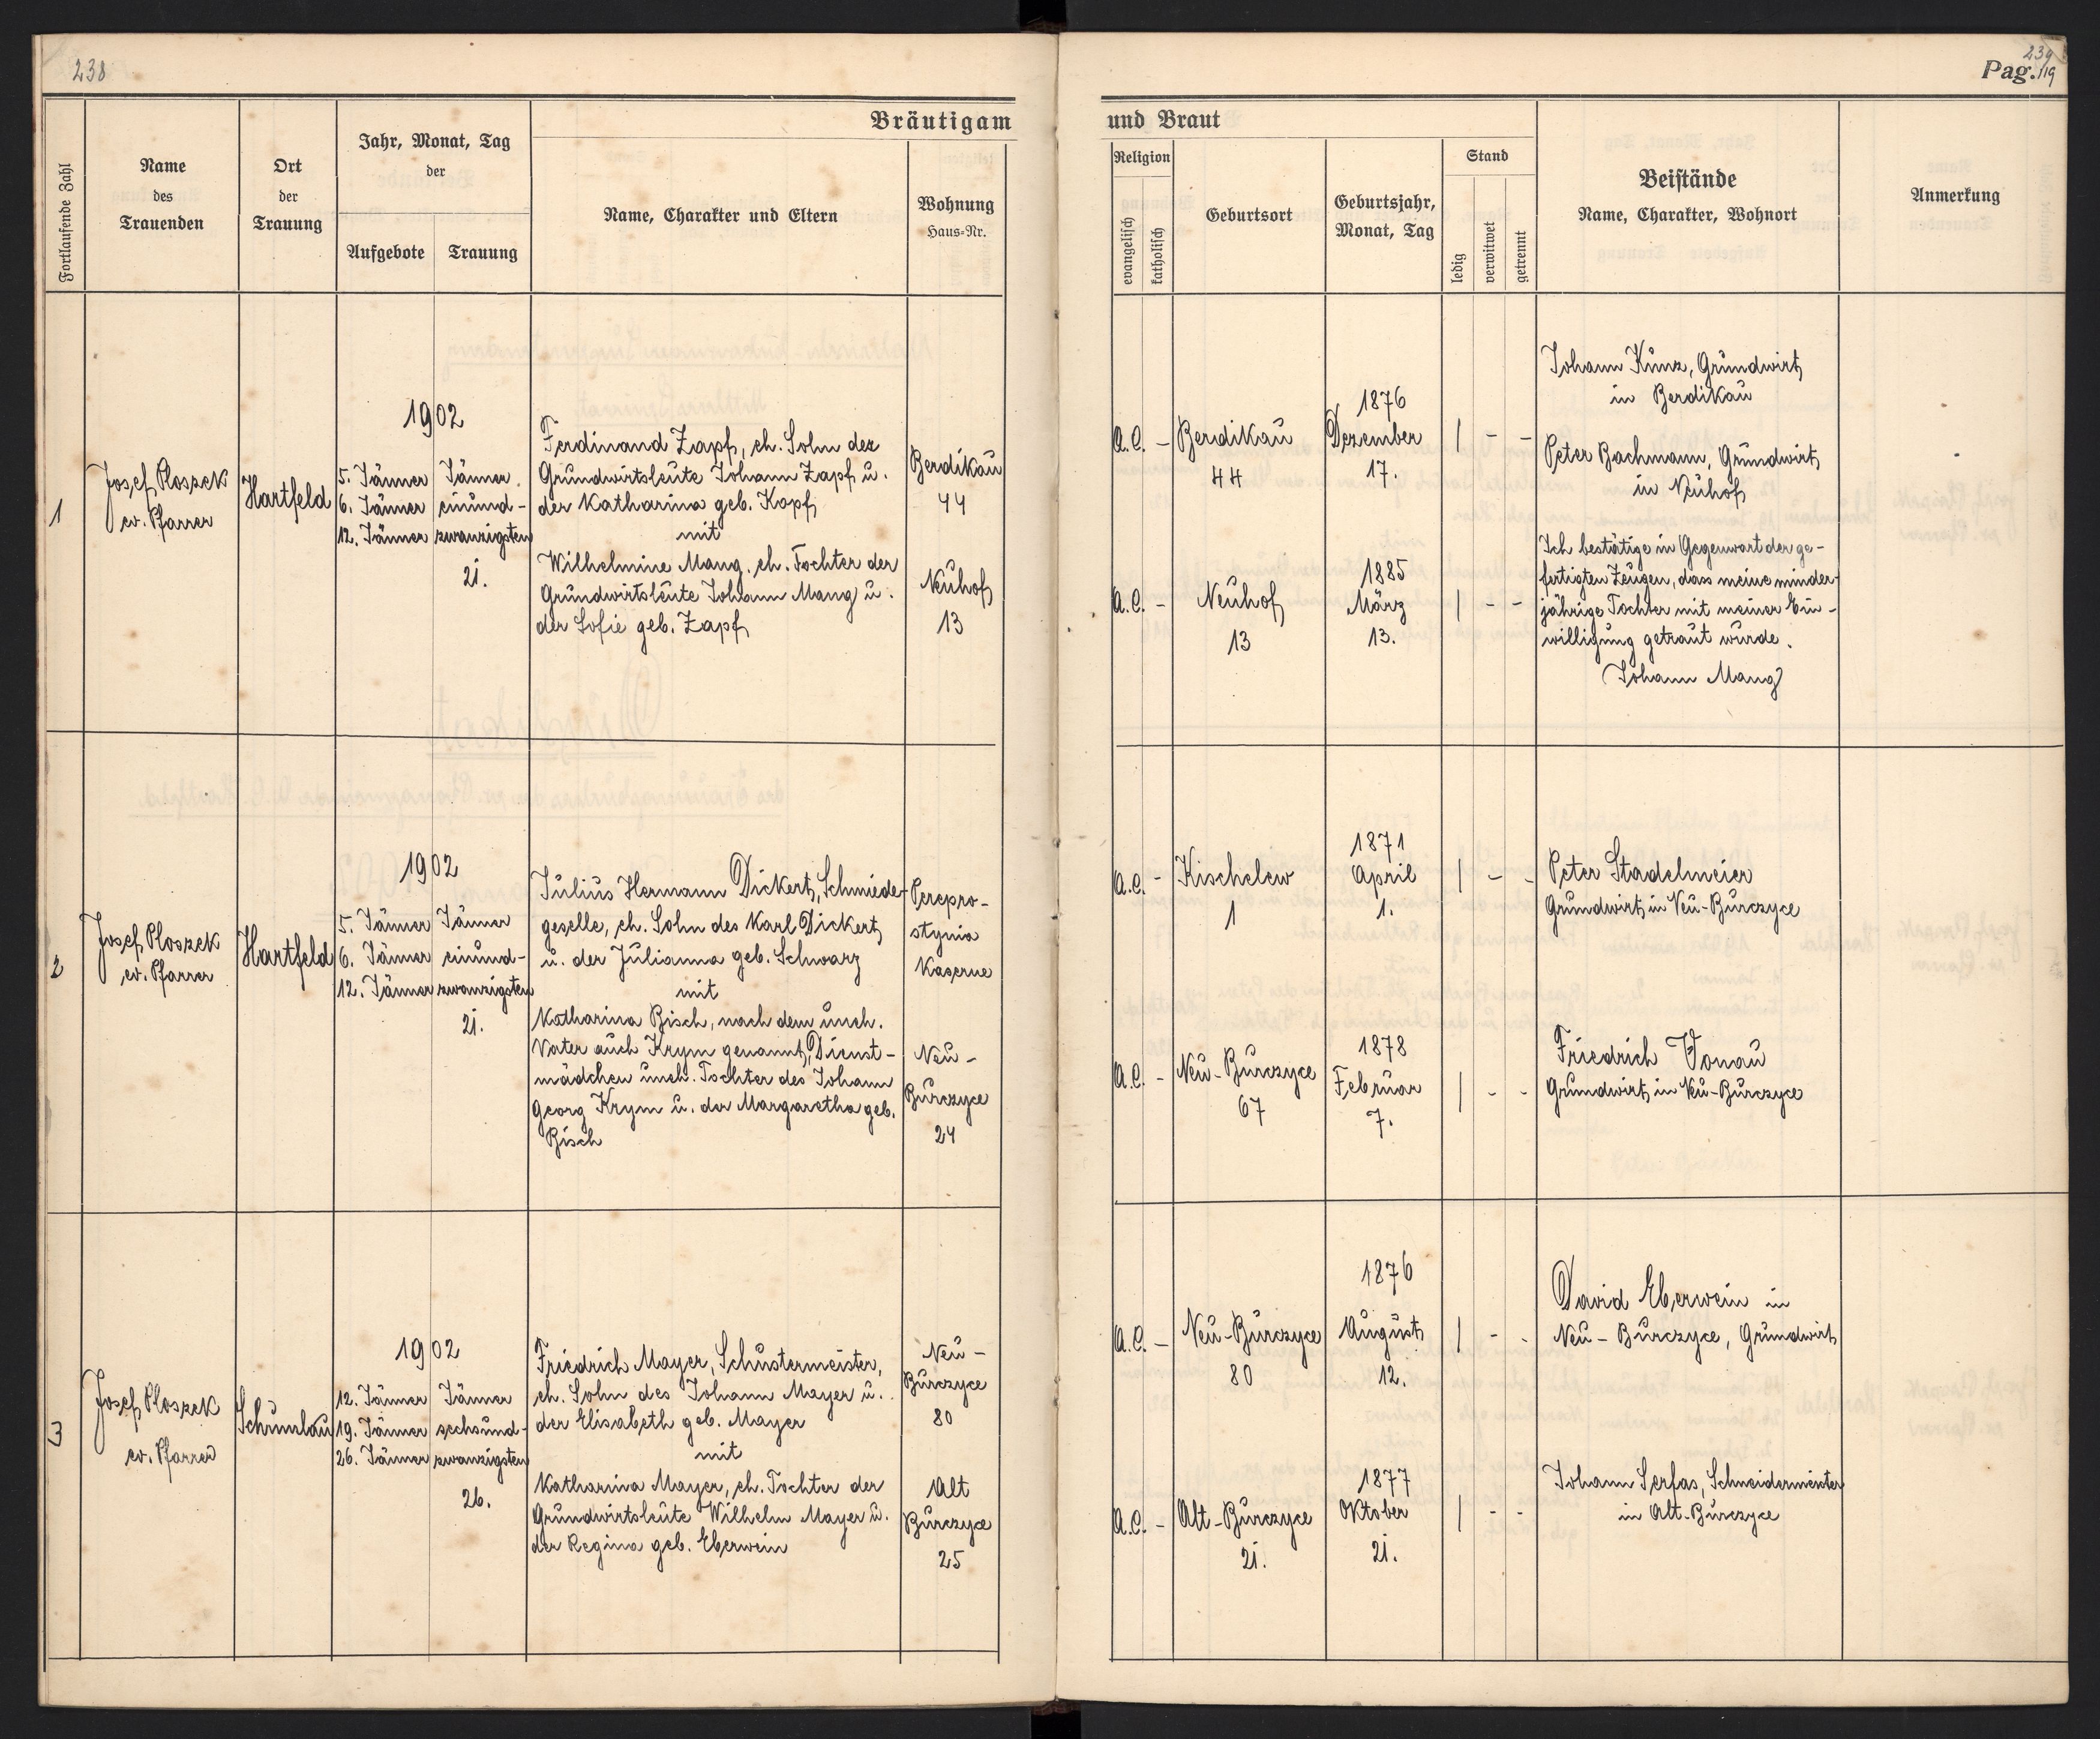 238
239
Pag. 119
Bräutigam
und Braut
Fortlaufende Zahl
Name
des
Trauenden
Ort
der
Trauung
Jahr, Monat, Tag
der
Aufgebote
Trauung
Name, Charakter und Eltern
Wohnung
Haus-Nr.
Religion
evangelisch
katholisch
Geburtsort
Geburtsjahr,
Monat, Tag
Stand
ledig
verwitwet
getrennt
Beistände
Name, Charakter, Wohnort
Anmerkung
1
Josef Ploszek
ev. Pfarrer
Hartfeld
1902
5. Jänner
6. Jänner
12. Jänner
Jänner
einund-
zwanzigsten
21.
Ferdinand Zapf, eh. Sohn der
Grundwirtsleute Johann Zapf u.
der Katharina geb. Kopf
mit
Wilhelmine Mang, eh. Tochter der
Grundwirtsleute Johann Mang u.
der Sofie geb. Zapf
Berdikau
44
Neuhof
13
A.C. -
Berdikau
44
1876
Dezember
17.
| - -
A.C. -
Neuhof
13
1885
März
13.
| - -
Johann Kunz, Grundwirt
in Berdikau
Peter Bachmann, Grundwirt
in Neuhof
Ich bestätige in Gegenwart der ge-
fertigten Zeugen, dass meine minder-
jährige Tochter mit meiner Ein-
willigung getraut wurde.
Johann Mang
2
Josef Ploszek
ev. Pfarrer
Hartfeld
1902
5. Jänner
6. Jänner
12. Jänner
Jänner
einund-
zwanzigsten
21.
Julius Hermann Dickert, Schmiede-
geselle, eh. Sohn des Karl Dickert
u. der Julianna geb. Schwarz
mit
Katharina Bisch, nach dem uneh.
Vater auch Krym genannt, Dienst-
mädchen uneh. Tochter des Johann
Georg Krym u. der Margaretha geb.
Bisch
Perepro-
stynia
Kaserne
Neu-
Burczyce
24
A.C. -
Kischelew
1
1871
April
1.
| - -
A.C. -
Neu-Burczyce
67
1878
Februar
7.
| - -
Peter Stadelmeier
Grundwirt in Neu-Burczyce
Friedrich Donau
Grundwirt in Neu-Burczyce
3
Josef Ploszek
ev. Pfarrer
Schumlau
1902
12. Jänner
19. Jänner
26. Jänner
Jänner
sechsund-
zwanzigsten
26.
Friedrich Mayer, Schustermeister,
eh. Sohn des Johann Mayer u.
der Elisabeth geb. Mayer
mit
Katharina Mayer, eh. Tochter der
Grundwirtsleute Wilhelm Mayer u.
der Regina geb. Eberwein
Neu-
Burczyce
80
Alt
Burczyce
25
A.C. -
Neu-Burczyce
80
1876
August
12.
| - -
A.C. -
Alt-Burczyce
21.
1877
Oktober
21.
| - -
David Eberwein in
Neu-Burczyce, Grundwirt
Johann Serfas, Schneidermeister
in Alt-Burczyce